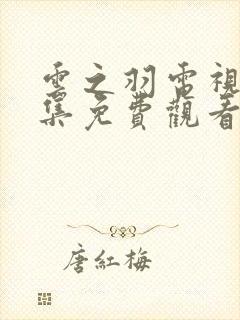 雲之羽電視
集免費觀看
唐紅梅